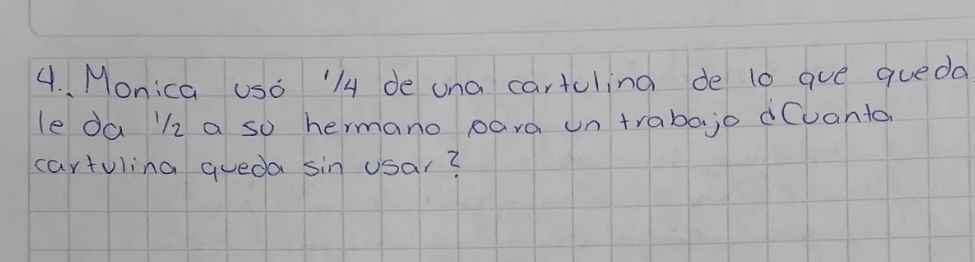 4. Monica usó 1/4 de una cartulina de lo que queda
le da 1/2 a su hermano para un trabajo ¿Cuanta
cartulina queda sin usar?